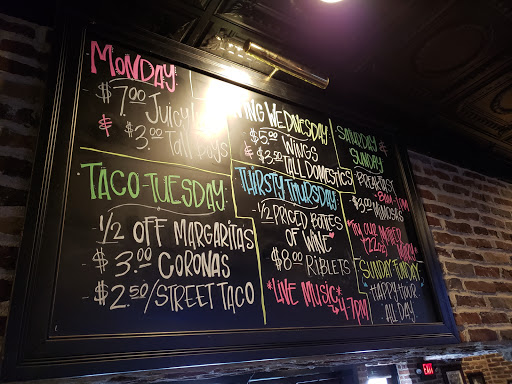 MONDAY
- $7.00 JUICY
& $3.00 TALL BOYS
TACO TUESDAY
- 1/2 OFF MARGARITAS
- $3.00 CORONAS
- $2.50/STREET TACO
WING WEDNESDAY
- $5.00 WINGS
& $3.50 TALL DOMESTICS
THIRSTY THURSDAY
- 1/2 PRICED BOTTLES
OF WINE
- $8.00 RIBLETS
*LIVE MUSIC*
4-7PM
SATURDAY
& SUNDAY
BREAKFAST
$3.00 MIMOSAS
*TRY OUR MOTHER
SUNDAY FUNDAY
HAPPY HOUR
ALL DAY
EXIT